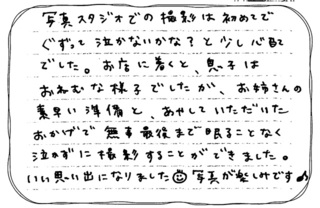 写真スタジオでの撮影は初めてで
ぐずって泣かないかな？と少し心配
でした。お店に着くと、息子は
おねむな様子でしたが、お姉さんの
素早い準備と、あやしていただいた
おかげで無事最後まで眠ることなく
泣かずに撮影することができました。
いい思い出になりました☺写真が楽しみです♪